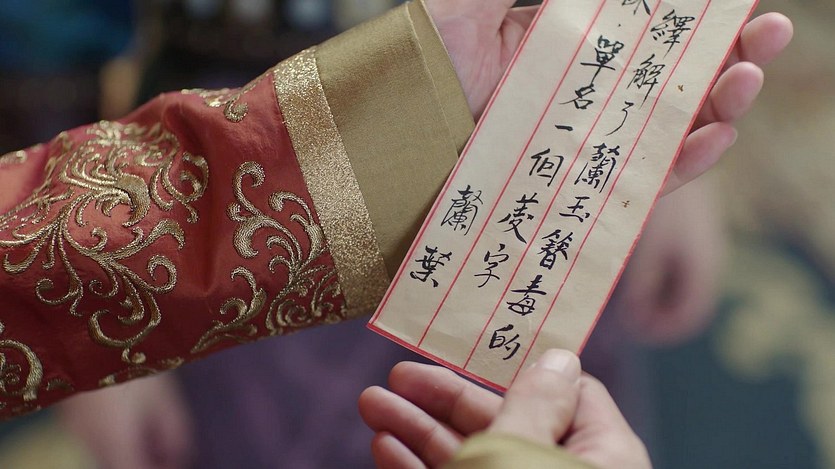 繹解了蘭玉簪毒的
單名一個菱字
蘭葉